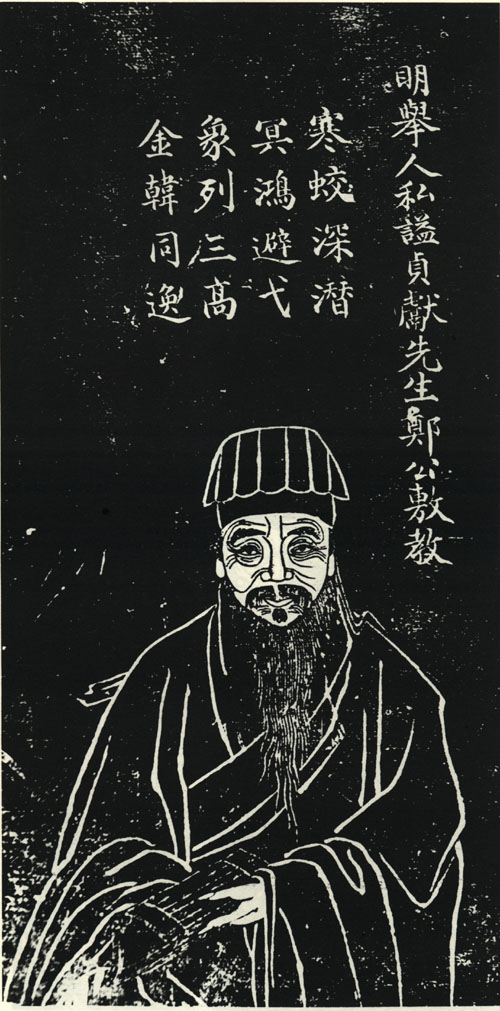 明舉人私謚貞獻先生鄭公敷教
寒蛟深潛
冥鴻避弋
象列三高
金韓同逸